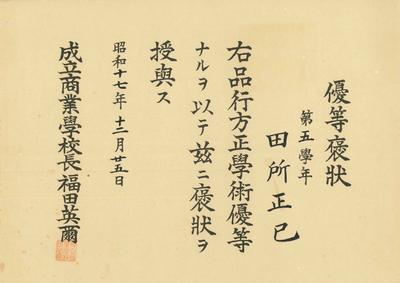 優等褒狀
第五學年
田所正已
右品行方正學術優等
ナルヲ以テ玆ニ褒狀ヲ
授與ス
昭和十七年十二月廿五日
成立商業學校長福田英爾